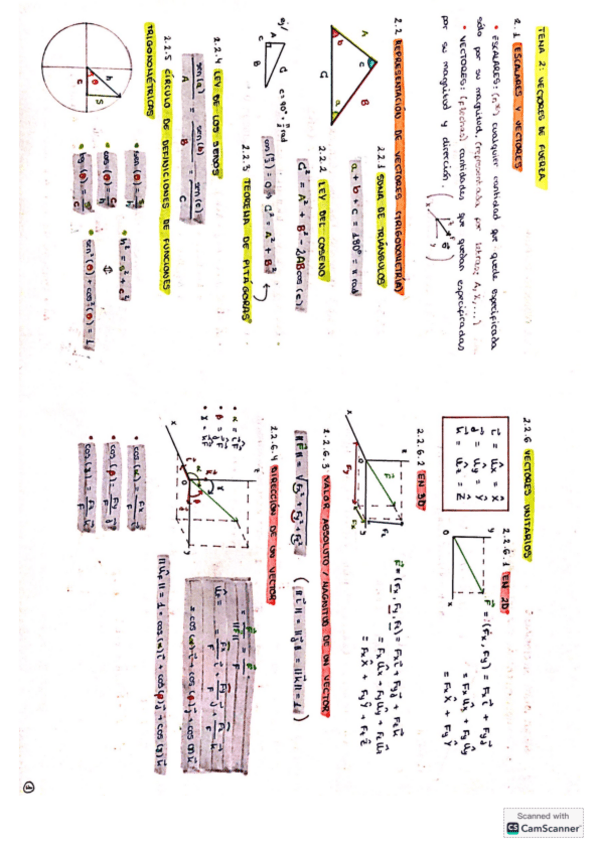 TEMA 2: VECTORES DE FUERZA
2.1 ESCALARES Y VECTORES
• ESCALARES: (nº) cualquier cantidad que quede especificada
sólo por su magnitud. (representada por letras: A, x, ...)
• VECTORES: (flechas) cantidades que quedan especificadas
por su magnitud y dirección.
2.2 REPRESENTACIÓN DE VECTORES (TRIGONOMETRÍA)
2.2.1 SUMA DE TRIÁNGULOS
A
b
c
B
a
C
a + b + c = 180º = π rad
2.2.2 LEY DEL COSENO
C² = A² + B² - 2AB cos(c)
ej/
A
C
c
B
c = 90º = π/2 rad
cos(π/2) = 0 → C² = A² + B²
2.2.3 TEOREMA DE PITÁGORAS
2.2.4 LEY DE LOS SENOS
sen(a)/A = sen(b)/B = sen(c)/C
2.2.5 CÍRCULO DE DEFINICIONES DE FUNCIONES
TRIGONOMÉTRICAS
h
θ
s
c
• sen(θ) = s/h
• cos(θ) = c/h
• tg(θ) = s/c
• h² = s² + c²
⇕
• sen²(θ) + cos²(θ) = 1
2.2.6 VECTORES UNITARIOS
2.2.6.1 EN 2D
y
x
0
F = (Fx, Fy) = Fx i + Fy j
= Fx ûx + Fy ûy
= Fx x̂ + Fy ŷ
2.2.6.2 EN 3D
z
x
y
0
F = (Fx, Fy, Fz) = Fx i + Fy j + Fz k
= Fx ûx + Fy ûy + Fz ûz
= Fx x̂ + Fy ŷ + Fz ẑ
2.2.6.3 VALOR ABSOLUTO / MAGNITUD DE UN VECTOR
||F|| = √(Fx² + Fy² + Fz²) (||i|| = ||j|| = ||k|| = 1)
2.2.6.4 DIRECCIÓN DE UN VECTOR
z
x
y
0
• cos(α) = Fx/F
• cos(β) = Fy/F
• cos(γ) = Fz/F
= cos(α) i + cos(β) j + cos(γ) k
1
Scanned with
CS CamScanner